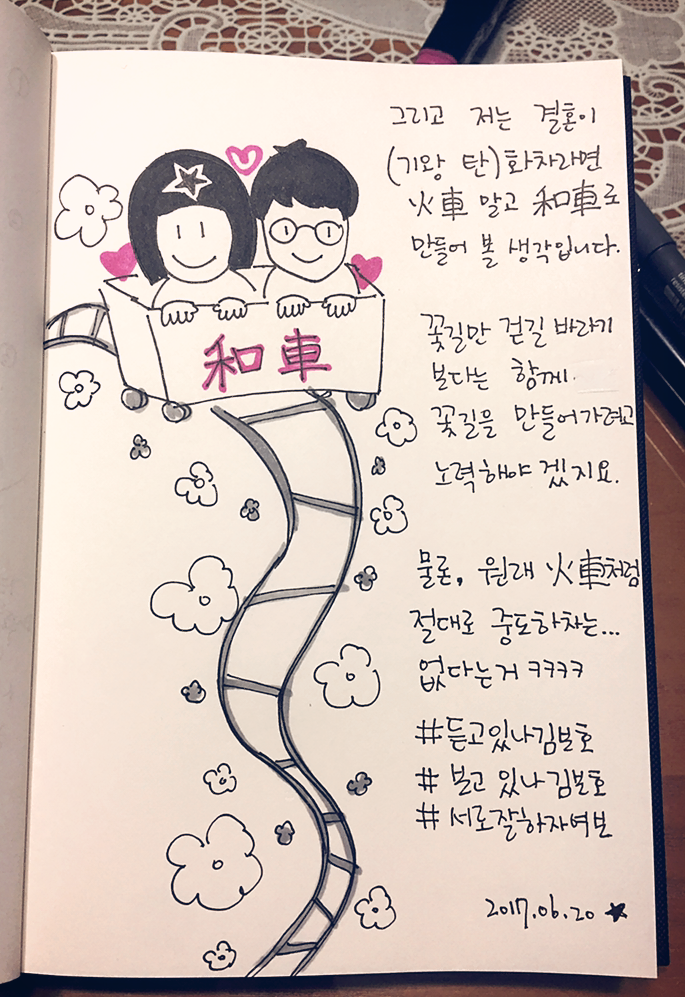 그리고 저는 결혼이
(기왕 탄) 화차라면
火車 말고 和車로
만들어 볼 생각입니다.
和車
꽃길만 걷길 바라기
보다는 함께.
꽃길을 만들어가려고
노력해야 겠지요.
물론, 원래 火車처럼
절대로 중도하차는...
없다는거 ㅋㅋㅋㅋ
#듣고있나김보호
# 보고 있나김보호
# 서로잘하자여보
2017.06.20